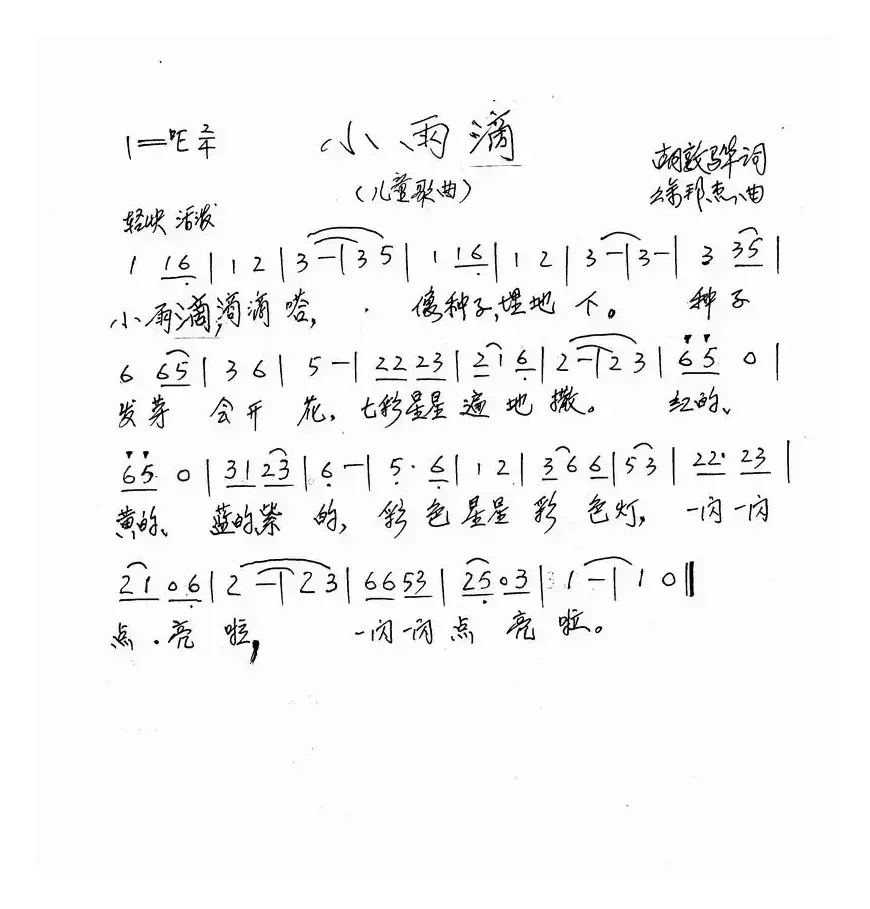 小雨滴
1=♭E 2/4
(儿童歌曲)
胡敦骅词
徐邦杰曲
轻快 活泼
1 16 | 1 2 | 3 - | 3 5 | 1 16 | 1 2 | 3 - | 3 - | 3 35 |
小雨滴,滴滴嗒, 像种子,埋地下。 种子
6 65 | 3 6 | 5 - | 22 23 | 2 1 6 | 2 - | 2 3 | 65 0 |
发芽 会开花, 七彩星星遍地撒。 红的、
65 0 | 31 23 | 6 - | 5· 6 | 1 2 | 3 6 6 | 5 3 | 22· 23 |
黄的、 蓝的紫的, 彩色星星彩色灯, 一闪一闪
21 06 | 2 - | 2 3 | 6653 | 2503 | 1 - | 1 0 ‖
点·亮啦, 一闪一闪点亮啦。